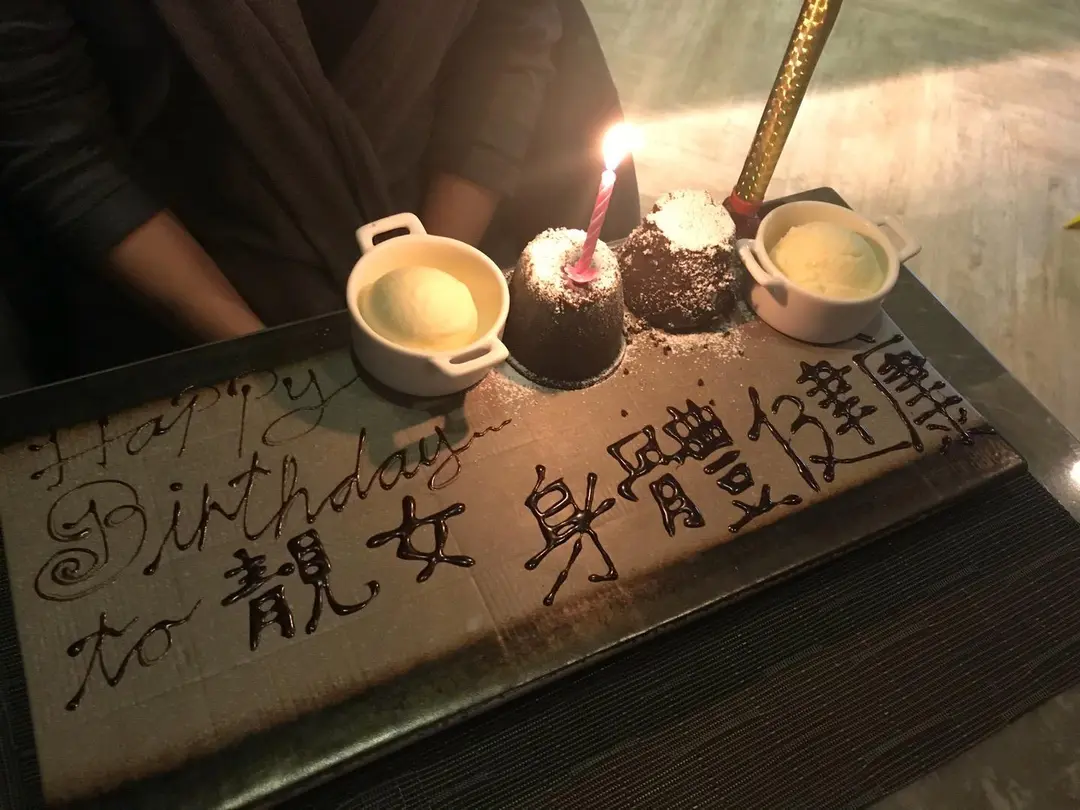 Happy
Birthday
to 靚女 身體健康